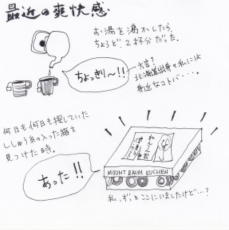 最近の爽快感
お湯を沸かしたら、
ちょうど2杯分だった。
ちょっきり〜!!
方言?
北海道出身の私には
身近なコトバ…。
何日も何日も探していた
ししゅう糸の入った箱を
見つけた時。
あった!!
MOUNT BAUM KUCHEN
私、ずっとここにいましたけど…?